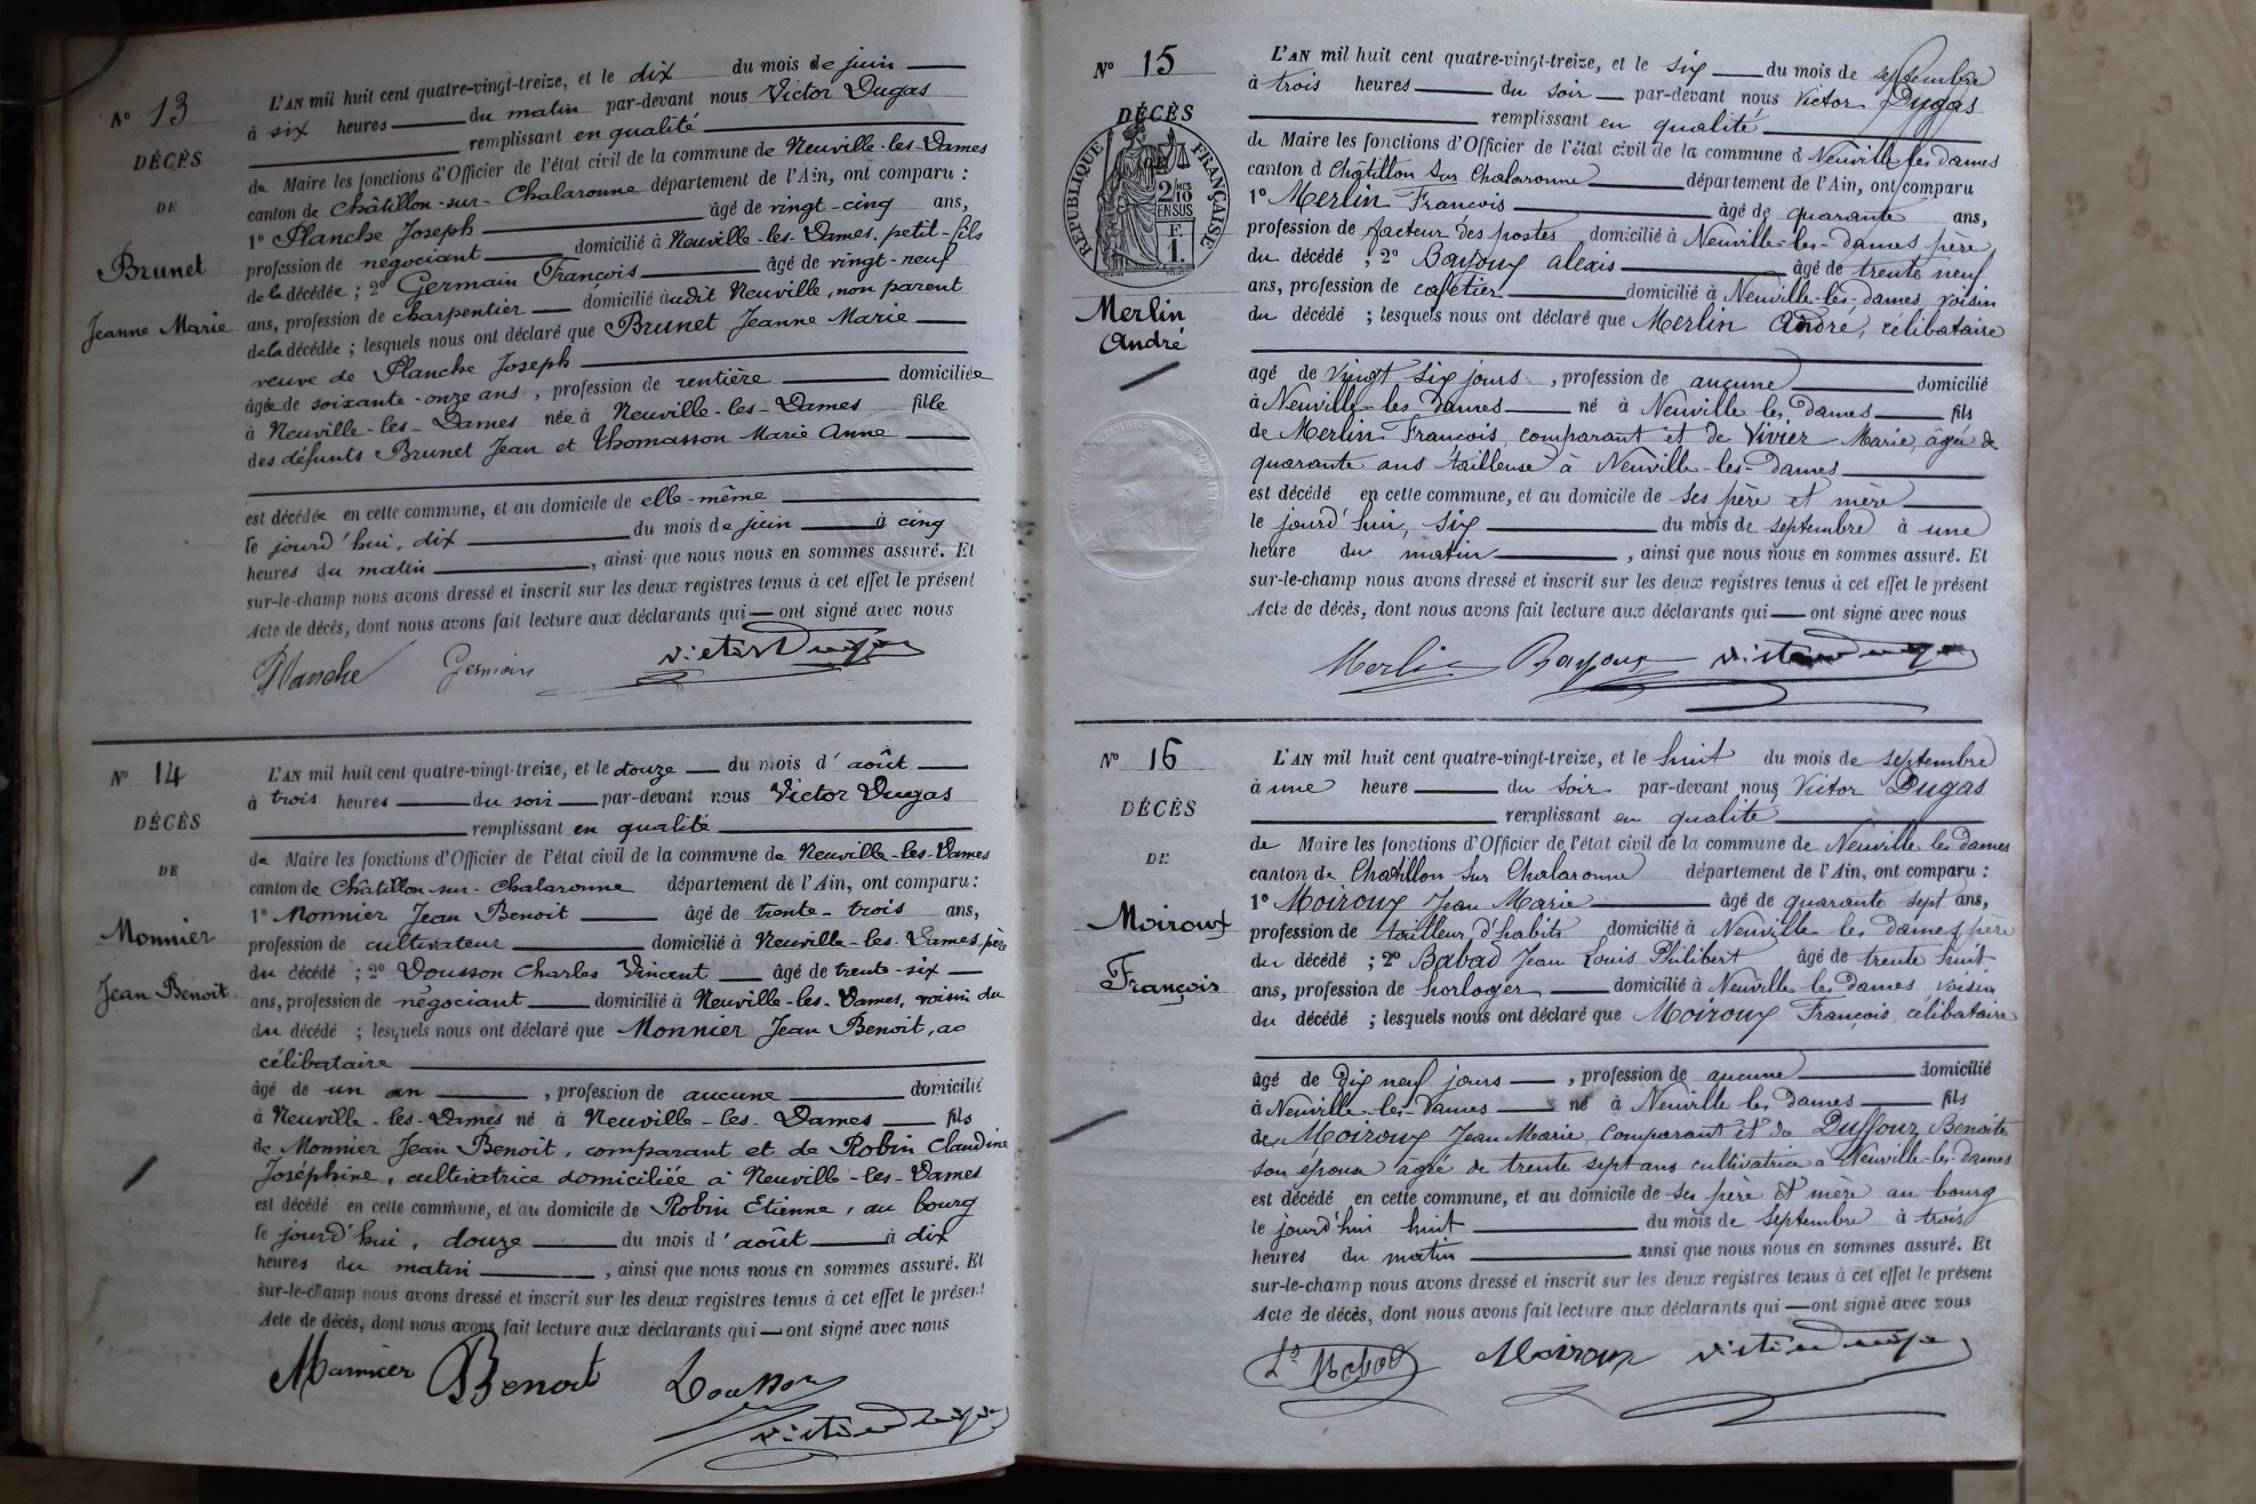 N° 13
DÉCÈS
DE
Brunet
Jeanne Marie
L'AN mil huit cent quatre-vingt-treize, et le dix du mois de juin
à six heures du matin par-devant nous Victor Dugas
remplissant en qualité
de Maire les fonctions d'Officier de l'état civil de la commune de Neuville-les-Dames
canton de Châtillon-sur-Chalaronne département de l'Ain, ont comparu :
1° Planche Joseph âgé de vingt-cinq ans,
profession de négociant domicilié à Neuville-les-Dames, petit-fils
de la décédée ; 2° Germain François âgé de vingt-neuf
ans, profession de charpentier domicilié audit Neuville, non parent
de la décédée ; lesquels nous ont déclaré que Brunet Jeanne Marie
veuve de Planche Joseph
âgée de soixante-onze ans, profession de rentière domiciliée
à Neuville-les-Dames née à Neuville-les-Dames fille
des défunts Brunet Jean et Thomasson Marie Anne
est décédée en cette commune, et au domicile de elle-même
le jourd'hui, dix du mois de juin à cinq
heures du matin, ainsi que nous nous en sommes assuré. Et
sur-le-champ nous avons dressé et inscrit sur les deux registres tenus à cet effet le présent
Acte de décès, dont nous avons fait lecture aux déclarants qui ont signé avec nous
Planche Germain Victor Dugas
N° 14
DÉCÈS
DE
Monnier
Jean Benoit
L'AN mil huit cent quatre-vingt-treize, et le douze du mois d'août
à trois heures du soir par-devant nous Victor Dugas
remplissant en qualité
de Maire les fonctions d'Officier de l'état civil de la commune de Neuville-les-Dames
canton de Châtillon-sur-Chalaronne département de l'Ain, ont comparu :
1° Monnier Jean Benoit âgé de trente-trois ans,
profession de cultivateur domicilié à Neuville-les-Dames, père
du décédé ; 2° Dousson Charles Vincent âgé de trente-six
ans, profession de négociant domicilié à Neuville-les-Dames, voisin du
du décédé ; lesquels nous ont déclaré que Monnier Jean Benoit,
célibataire
âgé de un an, profession de aucune domicilié
à Neuville-les-Dames né à Neuville-les-Dames fils
de Monnier Jean Benoit, comparant et de Robin Claudine
Joséphine, cultivatrice domiciliée à Neuville-les-Dames
est décédé en cette commune, et au domicile de Robin Etienne, au bourg
le jourd'hui, douze du mois d'août à dix
heures du matin, ainsi que nous nous en sommes assuré. Et
sur-le-champ nous avons dressé et inscrit sur les deux registres tenus à cet effet le présent
Acte de décès, dont nous avons fait lecture aux déclarants qui ont signé avec nous
Monnier Benoit Dousson
Victor Dugas
N° 15
DÉCÈS
RÉPUBLIQUE FRANÇAISE
2/10
EN SUS
F.
1.
Merlin
André
L'AN mil huit cent quatre-vingt-treize, et le six du mois de septembre
à trois heures du soir par-devant nous Victor Dugas
remplissant en qualité
de Maire les fonctions d'Officier de l'état civil de la commune d Neuville les dames
canton d Châtillon sur Chalaronne département de l'Ain, ont comparu
1° Merlin François âgé de quarante ans,
profession de facteur des postes domicilié à Neuville-les-dames père
du décédé ; 2° Bayoux alexis âgé de trente neuf
ans, profession de cafetier domicilié à Neuville-les-dames voisin
du décédé ; lesquels nous ont déclaré que Merlin André, célibataire
âgé de vingt six jours, profession de aucune domicilié
à Neuville-les dames né à Neuville les dames fils
de Merlin François, comparant et de Vivier Marie, âgée de
quarante ans tailleuse à Neuville-les-dames
est décédé en cette commune, et au domicile de ses père et mère
le jourd'hui, six du mois de septembre à une
heure du matin, ainsi que nous nous en sommes assuré. Et
sur-le-champ nous avons dressé et inscrit sur les deux registres tenus à cet effet le présent
Acte de décès, dont nous avons fait lecture aux déclarants qui ont signé avec nous
Merlin Bayoux Victor Dugas
N° 16
DÉCÈS
DE
Moiroux
François
L'AN mil huit cent quatre-vingt-treize, et le huit du mois de septembre
à une heure du soir par-devant nous Victor Dugas
remplissant en qualité
de Maire les fonctions d'Officier de l'état civil de la commune de Neuville les dames
canton de Chatillon sur Chalaronne département de l'Ain, ont comparu :
1° Moiroux Jean Marie âgé de quarante sept ans,
profession de tailleur d'habits domicilié à Neuville les dames père
du décédé ; 2° Babad Jean Louis Philibert âgé de trente huit
ans, profession de horloger domicilié à Neuville les dames voisin
du décédé ; lesquels nous ont déclaré que Moiroux François célibataire
âgé de dix neuf jours, profession de aucune domicilié
à Neuville-les-dames né à Neuville les dames fils
de Moiroux Jean Marie, comparant et de Duffour Benoite
son épouse âgée de trente sept ans cultivatrice à Neuville-les-dames
est décédé en cette commune, et au domicile de ses père et mère au bourg
le jourd'hui huit du mois de septembre à trois
heures du matin ainsi que nous nous en sommes assuré. Et
sur-le-champ nous avons dressé et inscrit sur les deux registres tenus à cet effet le présent
Acte de décès, dont nous avons fait lecture aux déclarants qui ont signé avec nous
Ls Babad Moiroux Victor Dugas